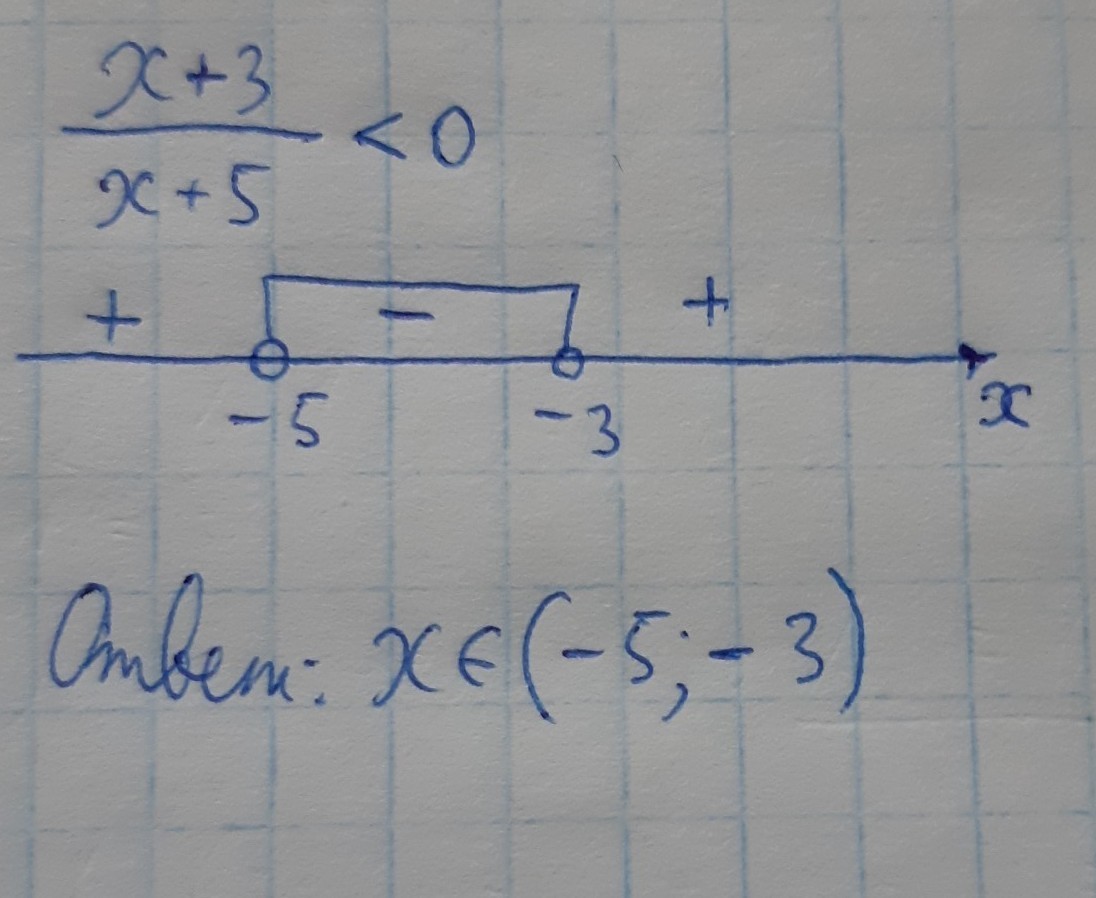 x+3
x+5 < 0
+ - +
-5 -3 x
Ответ: x∈(-5;-3)